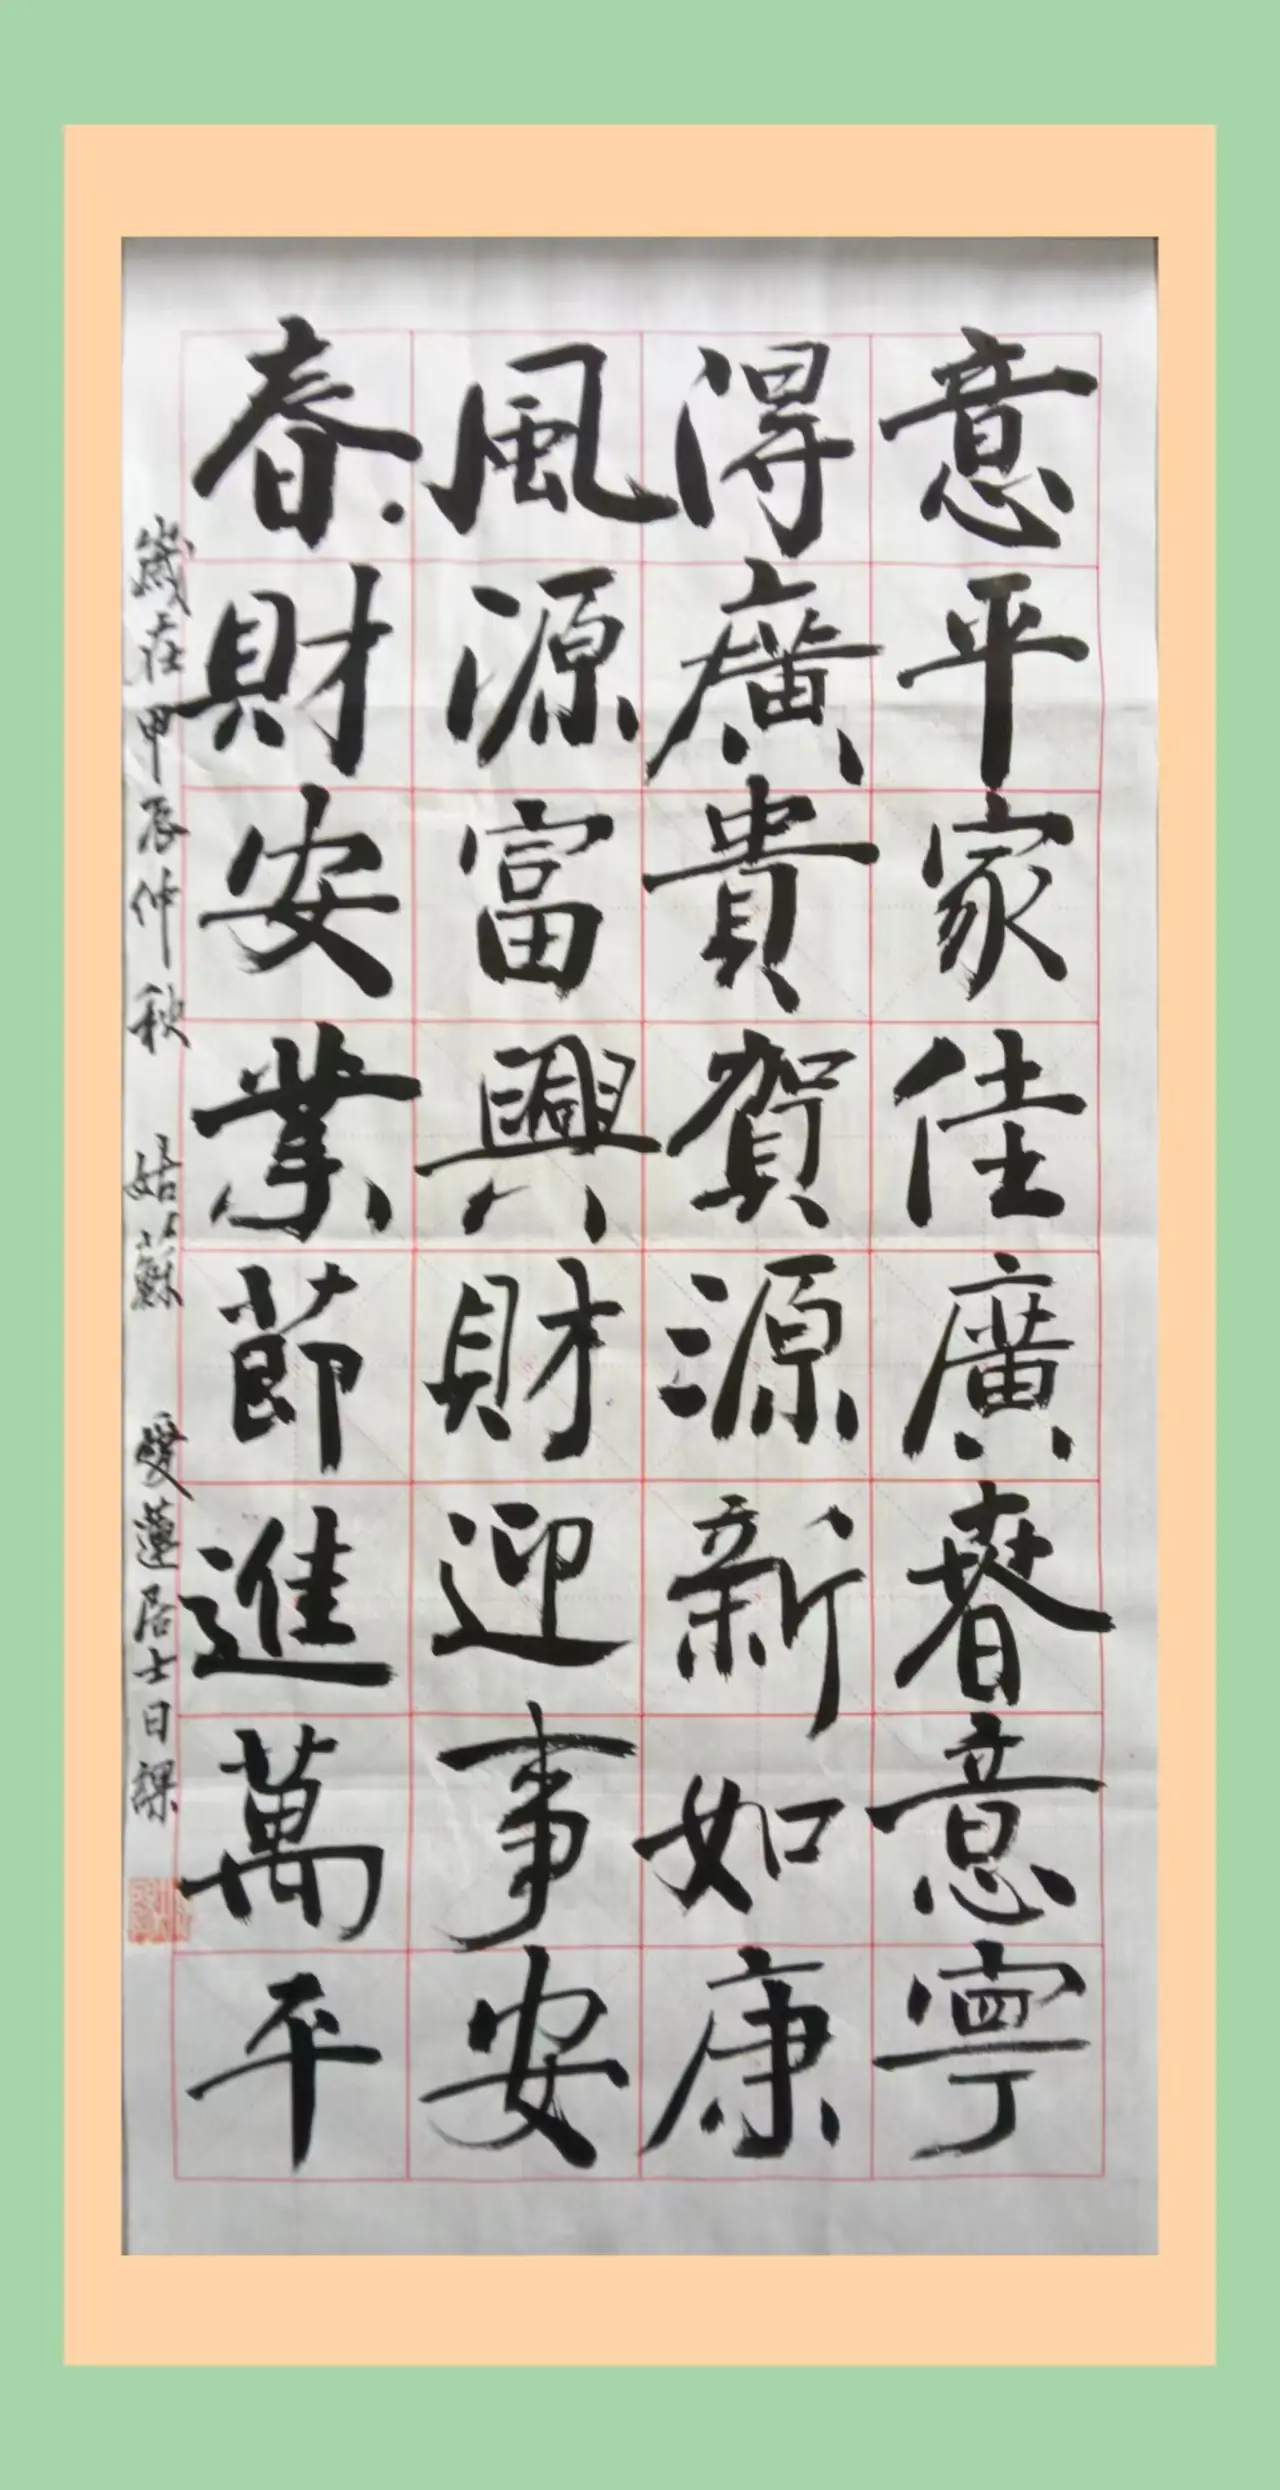 春風得意
財源廣平
安富貴家
業興賀佳
節財源廣
進迎新春
萬事如意
平安康寧
歲在甲辰仲秋 姑蘇 愛蓮居士日課